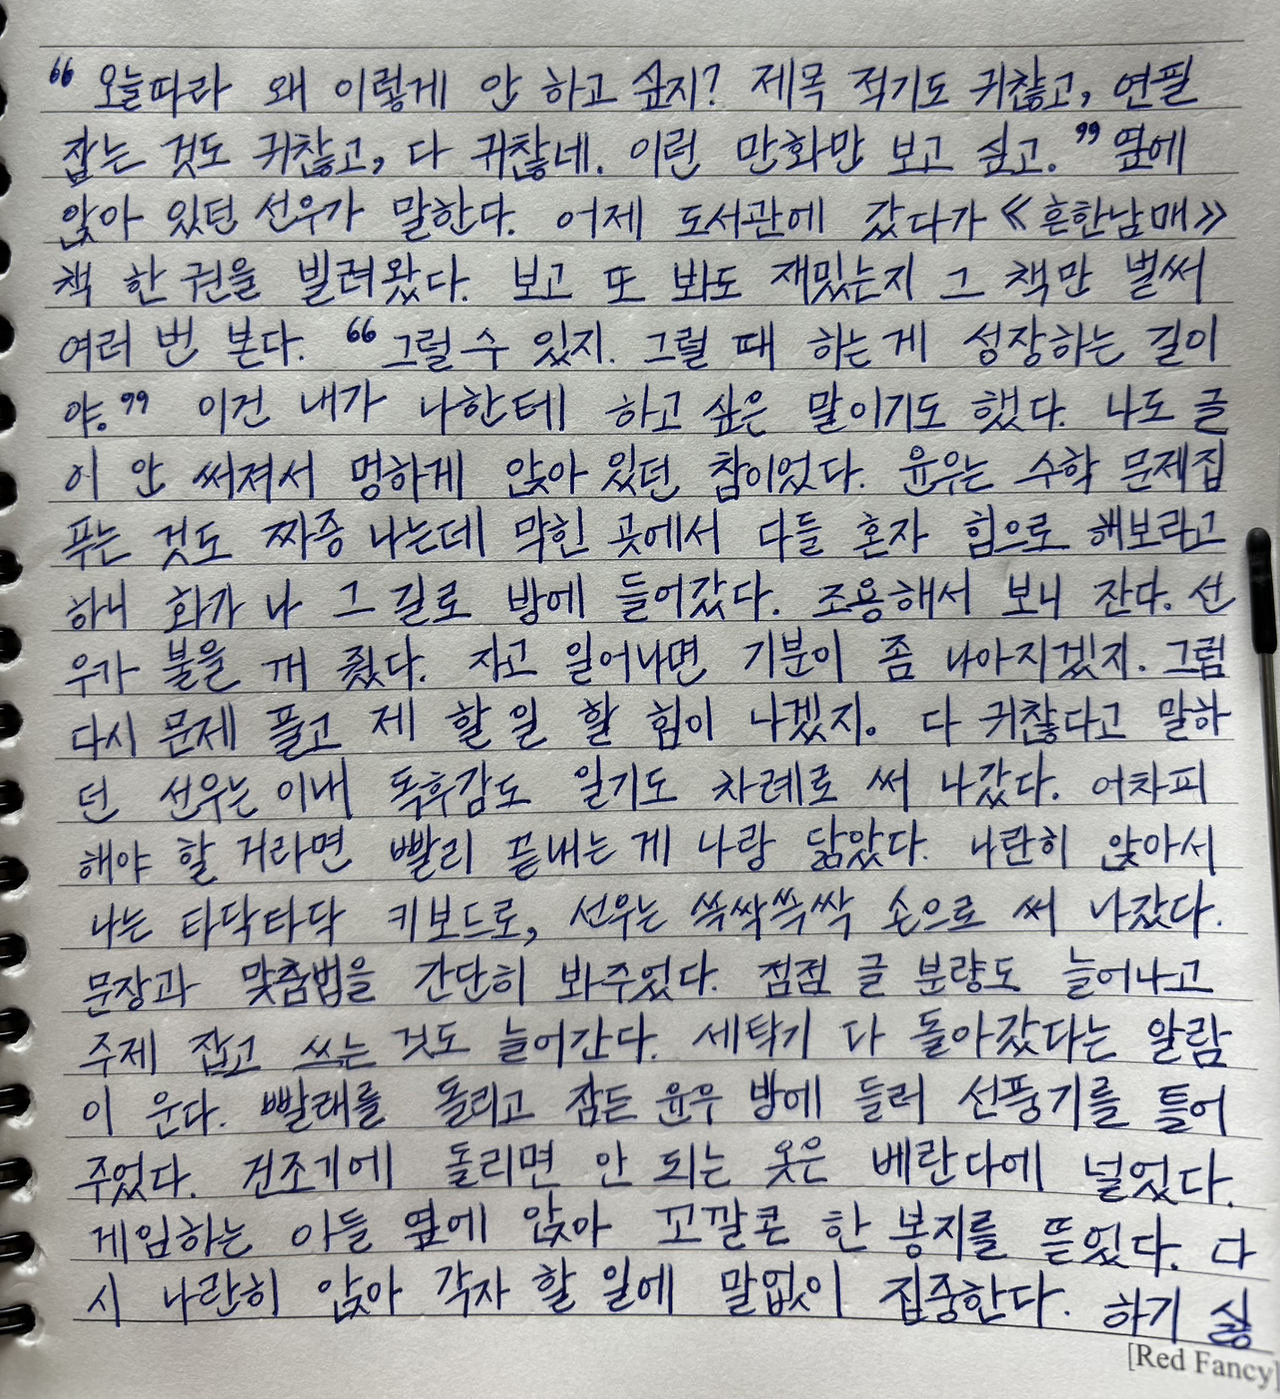 “ 오늘따라 왜 이렇게 안 하고 싶지? 제목 적기도 귀찮고, 연필
잡는 것도 귀찮고, 다 귀찮네. 이런 만화만 보고 싶고. ” 옆에
앉아 있던 선우가 말한다. 어제 도서관에 갔다가 《흔한남매》
책 한 권을 빌려왔다. 보고 또 봐도 재밌는지 그 책만 벌써
여러 번 본다. “ 그럴 수 있지. 그럴 때 하는 게 성장하는 길이
야. ” 이건 내가 나한테 하고 싶은 말이기도 했다. 나도 글
이 안 써져서 멍하게 앉아 있던 참이었다. 윤우는 수학 문제집
푸는 것도 짜증 나는데 막힌 곳에서 다들 혼자 힘으로 해보라고
하니 화가 나 그 길로 방에 들어갔다. 조용해서 보니 잔다. 선
우가 불을 꺼 줬다. 자고 일어나면 기분이 좀 나아지겠지. 그럼
다시 문제 풀고 제 할 일 할 힘이 나겠지. 다 귀찮다고 말하
던 선우는 이내 독후감도 일기도 차례로 써 나갔다. 어차피
해야 할 거라면 빨리 끝내는 게 나랑 닮았다. 나란히 앉아서
나는 타닥타닥 키보드로, 선우는 쓱싹쓱싹 손으로 써 나갔다.
문장과 맞춤법을 간단히 봐주었다. 점점 글 분량도 늘어나고
주제 잡고 쓰는 것도 늘어간다. 세탁기 다 돌아갔다는 알람
이 운다. 빨래를 돌리고 잠든 윤우 방에 들러 선풍기를 틀어
주었다. 건조기에 돌리면 안 되는 옷은 베란다에 널었다.
게임하는 아들 옆에 앉아 꼬깔콘 한 봉지를 뜯었다. 다
시 나란히 앉아 각자 할 일에 말없이 집중한다. 하기 싫
[Red Fancy]